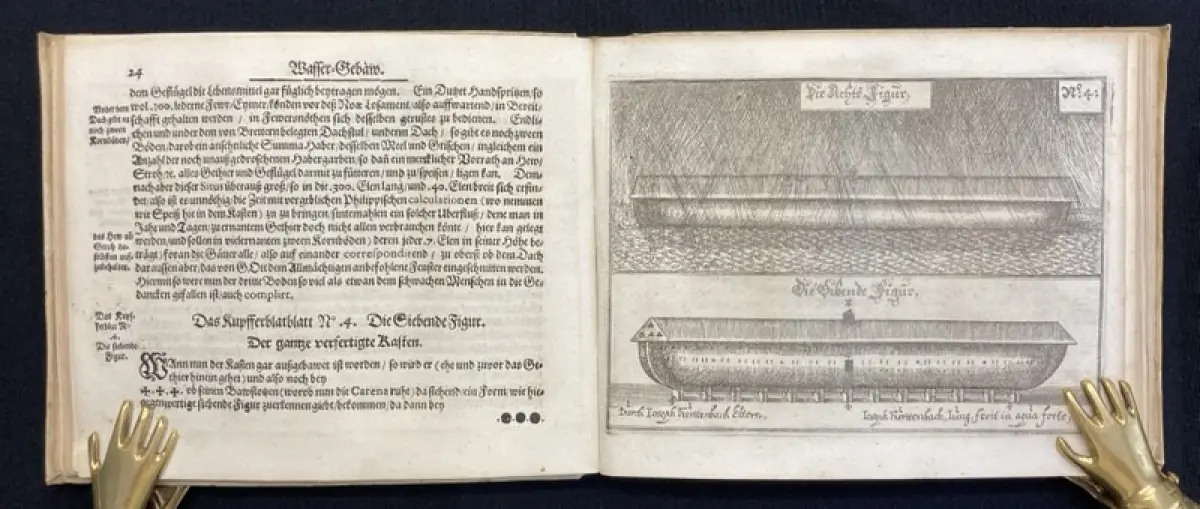 24
Wasser-Gebäw.
dem Geflügel die Lebensmittel gar füglich beytragen mögen. Ein Dutzet Handspritzen/so
wol .300. lederne Fewr-Eymer/könden vor deß Noæ Losament/also auffwartend/in Bereit-
schafft gehalten werden / in Fewersnöthen sich desselben gerustes zu bedienen. Endli-
chen und under dem von Brettern belegten Dachstul/underm Dach/so gibt es noch zween
Böden/darob ein ansehnliche Summa Haber/desselben Meel und Grischen/ingleichem ein
Anzahl der noch unaußgedroschenem Habergarben/so dañ ein mercklicher Vorrath an Hew/
Stroh/ꝛc. alles Gethier und Geflügel darmit zu fütteren/und zu speisen/ligen kan. Dem-
nach aber dieser Situs überauß groß/so in die .300. Elen lang/und .40. Elen breit sich erfin-
det/also ist es unnöhtig/die Zeit mit vergeblichen Philippischen calculationen (wo nemmen
wir Speiß hie in dem Kasten) zu zu bringen/sintemahlen ein solcher Uberfluß/dene man in
Jahr und Tagen/zu ernantem Gethier doch nicht allen verbrauchen könte / hier kan gelegt
werden/und sollen in vielernanten zween Kornböden/deren jeder .7. Elen in seiner Höhe be-
trägt/foran die Gätter alle/also auf einander correspondirend/zu oberst ob dem Dach
daraussen aber/das von GOtt dem Allmächtigen anbefohlene Fenster eingeschnitten werden.
Hiermit so were nun der dritte Boden so viel als etwan dem schwachen Menschen in die Ge-
dancken gefallen ist/auch complirt.
Under dem
Dach gibt es
noch zween
Kornböden/
das Hew uñ
Stroh da-
selbsten auff-
zubehalten.
Das Kupfferblatblatt Nº .4. Die Siebende Figur.
Der gantze verfertigte Kasten.
Das Kupf-
ferblat Nº
.4.
Die siebende
Figur.
WAnn nun der Kasten gar außgebawet ist worden/so wird er (ehe und zuvor das Ge-
thier hinein gehet) und also noch bey
✢.✢.✢. ob seinen Bawklötzen (worob nun die Carena ruht/da stehend/ein Form wie hie-
gegenwertige sibende Figur zuerkennen giebt/bekommen/da dann bey
Die Achte Figur,
Nº. 4:
Die Sibende Figur,
Durch Joseph Furttenbach Eltern,
Joseph Furttenbach, Jüng. fecit in aqua forte,